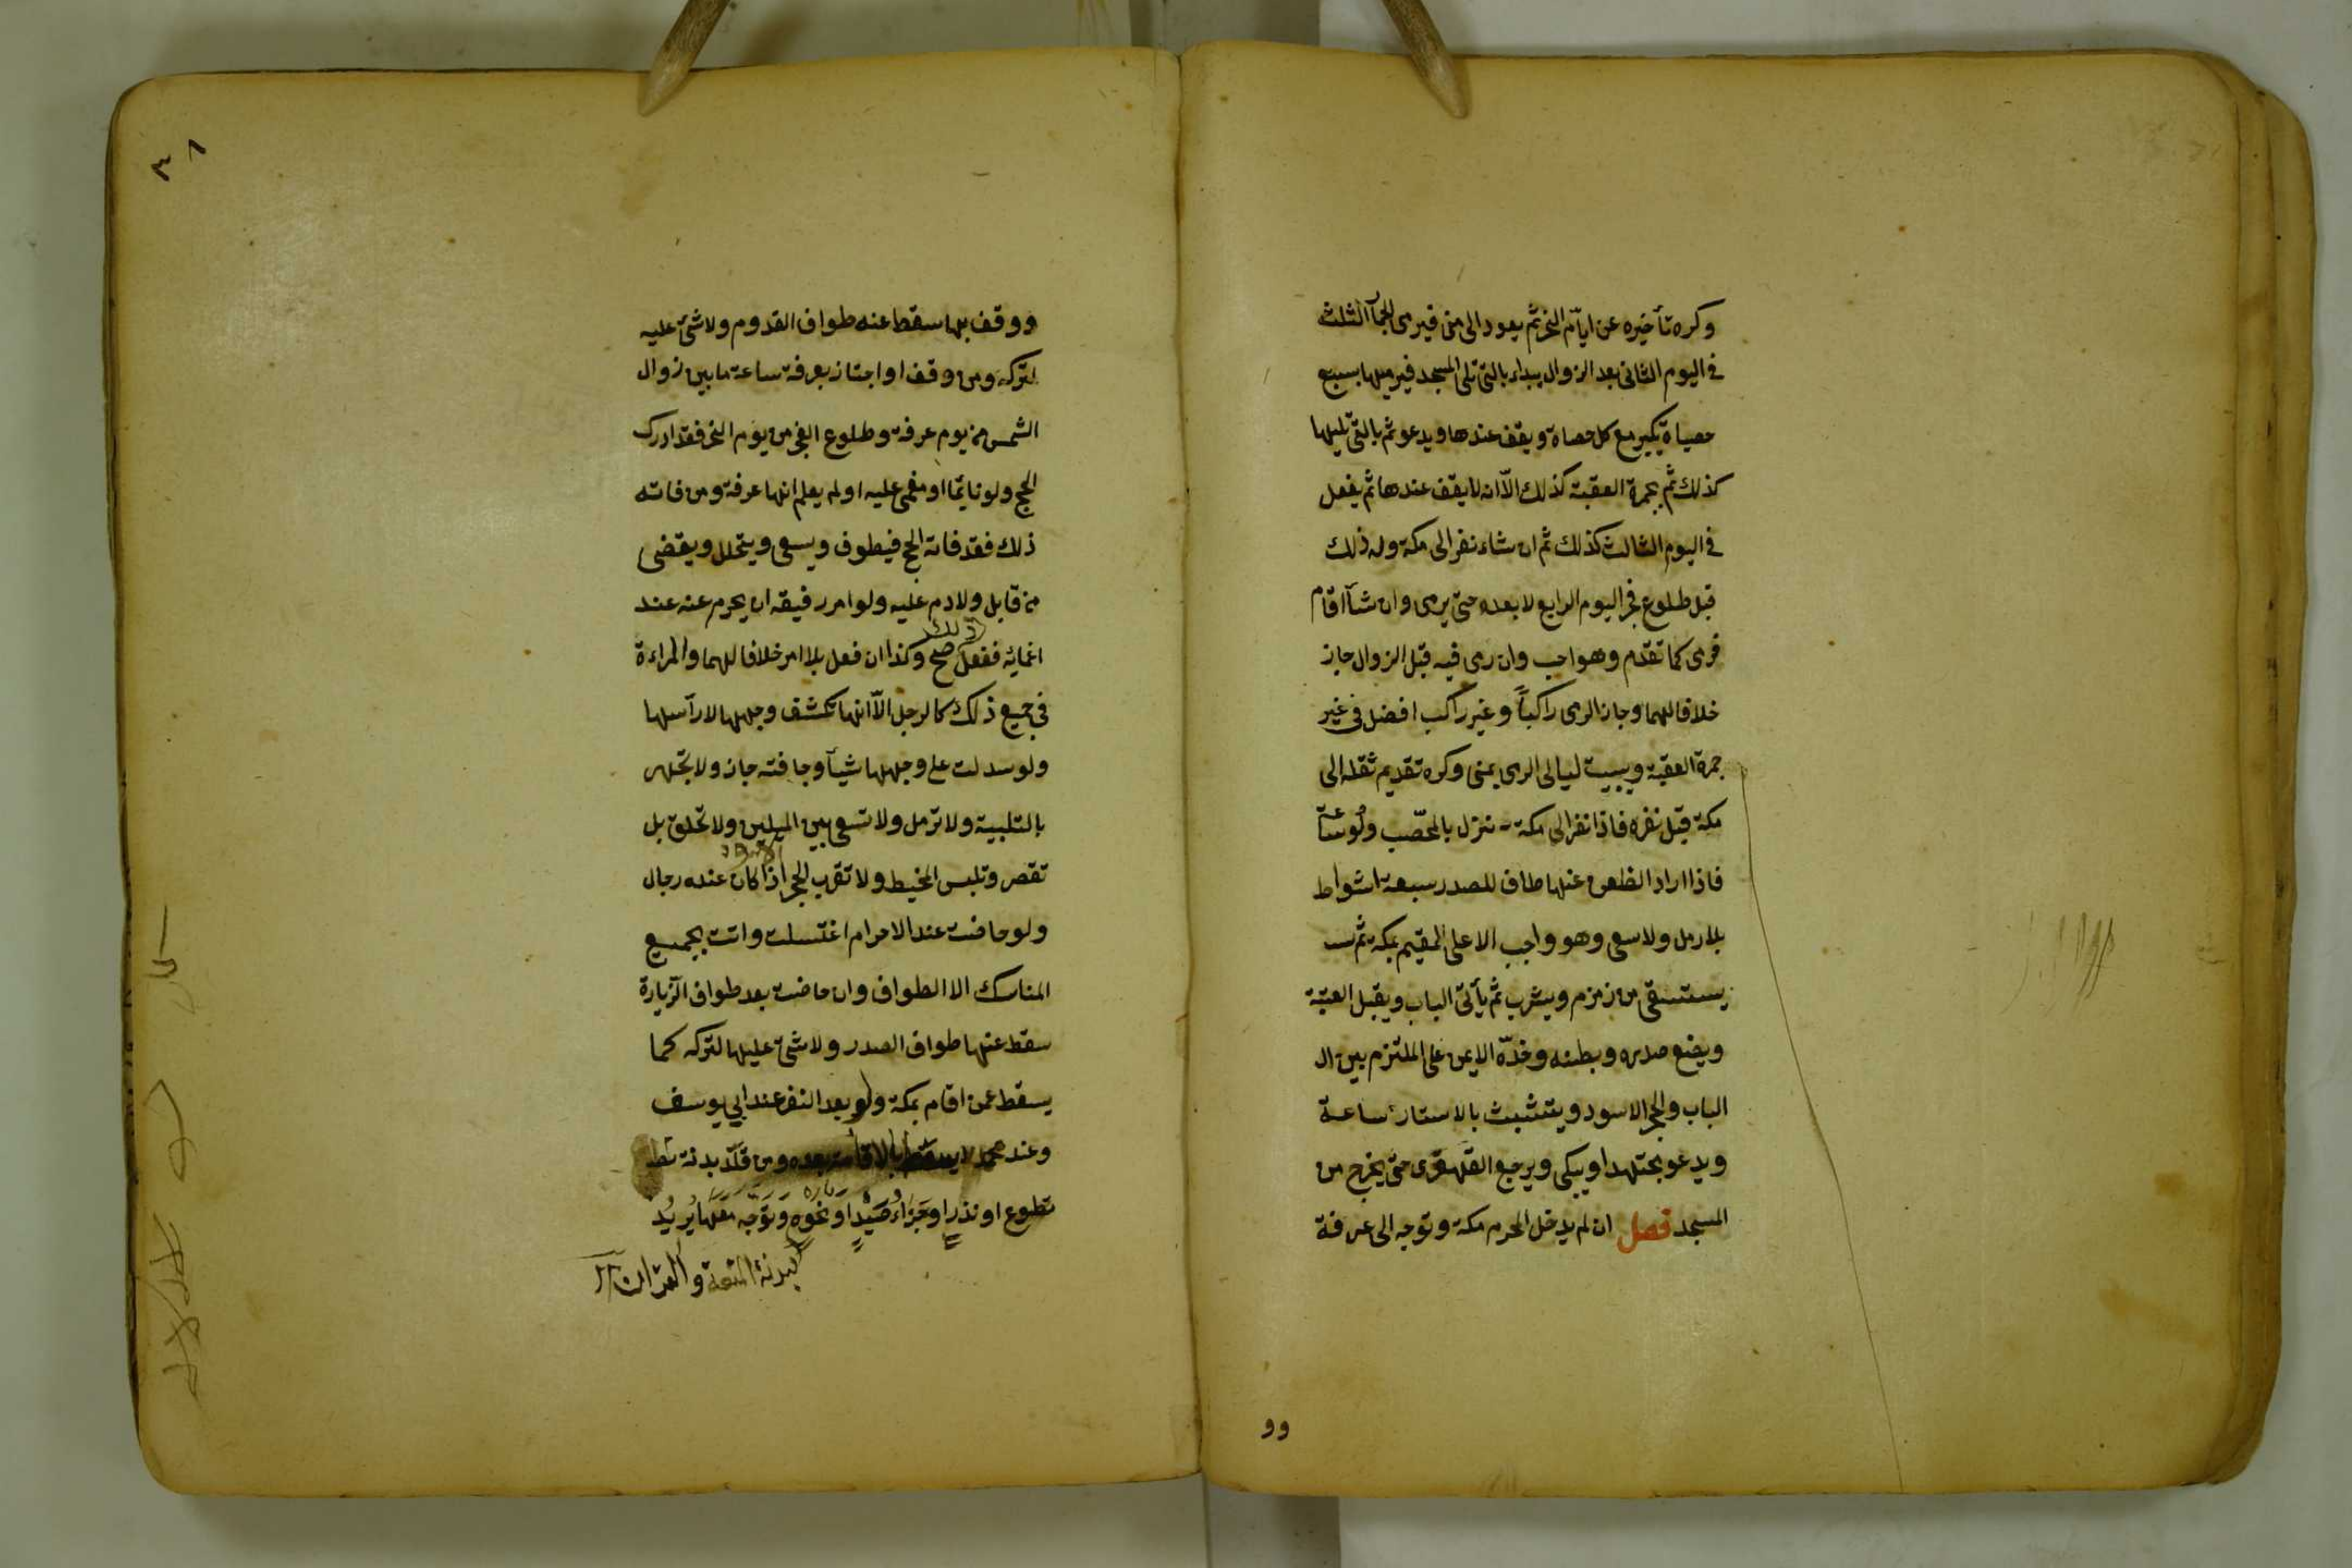 وكره تأخيره عن ايّام النحر ثم يعود الى منى فيرمى الجمآ الثلث
فى اليوم الثانى بعد الزوال يبداء بالتى تلى المسجد فيرميها بسبع
حصياة يكبر مع كل حصاة ويقف عندها ويدعو ثم بالتى تليها
كذلك ثم بجمرة العقبة كذلك الاّ انه لا يقف عندها ثم يفعل
فى اليوم الثالث كذلك ثم ان شاء نفر الى مكة وله ذلك
قبل طلوع فجر اليوم الرابع لا بعده حتى يرمى وان شآ اقام
فرمى كما تقدم وهو احب وان رمى فيه قبل الزوال جاز
خلافا لهما وجاز الرمى راكباً وغير راكب افضل فى غير
جمرة العقبة ويبيت ليالى الرمى بمنى وكره تقديم ثقله الى
مكة قبل نفره فاذا نفر الى مكة نزل بالمحصّب ولو ساعة
فاذا اراد الظعن عنها طاف للصدر سبعة اشواط
بلا رمل ولا سعى وهو واجب الا على المقيم بمكة ثم
يستسقى من زمزم ويشرب ثم يأتى الباب ويقبل العتبة
ويضع صدره وبطنه وخدّه الايمن على الملتزم بين ال
الباب والحجر الاسود ويتشبث بالاستار ساعة
ويدعو مجتهدا ويبكى ويرجع القهقرى حتى يخرج من
المسجد فصل ان لم يدخل المحرم مكة وتوجه الى عرفة
وو
٣٨
ووقف بها سقط عنه طواف القدوم ولا شئ عليه
لتركه ومن وقف او اجتاز بعرفة ساعة ما بين زوال
الشمس من يوم عرفة وطلوع الفجر من يوم النحر فقد ادرك
الحج ولو نايمًا او مغمى عليه او لم يعلم انها عرفة ومن فاته
ذلك فقد فاته الحج فيطوف ويسعى ويتحلل ويقضى
من قابل ولا دم عليه ولو امر رفيقه ان يحرم عنه عند
اغمائه ففعل ذلك صح وكذا ان فعل بلا امر خلافا لهما والمراءة
فى جميع ذلك كالرجل الاّ انها تكشف وجهها لا رآسها
ولو سدلت على وجهها شيآ وجافته جاز ولا تجهر
بالتلبية ولا ترمل ولا تسعى بين الميلين ولا تحلق بل
تقصر وتلبس المخيط ولا تقرب الحجر الاسود اذا كان عنده رجال
ولو حاضت عند الاحرام اغتسلت واتت بجميع
المناسك الا الطواف وان حاضت بعد طواف الزيارة
سقط عنها طواف الصدر ولا شئ عليها لتركه كما
يسقط عمن اقام بمكة ولو بعد النفر عند ابى يوسف
وعند محمد لا يسقط بالاقامة بعده ومن قلّد بدنة تط
تطوع او نذرٍ او جَزَاءُ صَيْدٍ او نحوه وتوّجه معها يُريدُ
البدنة المتعة والقران